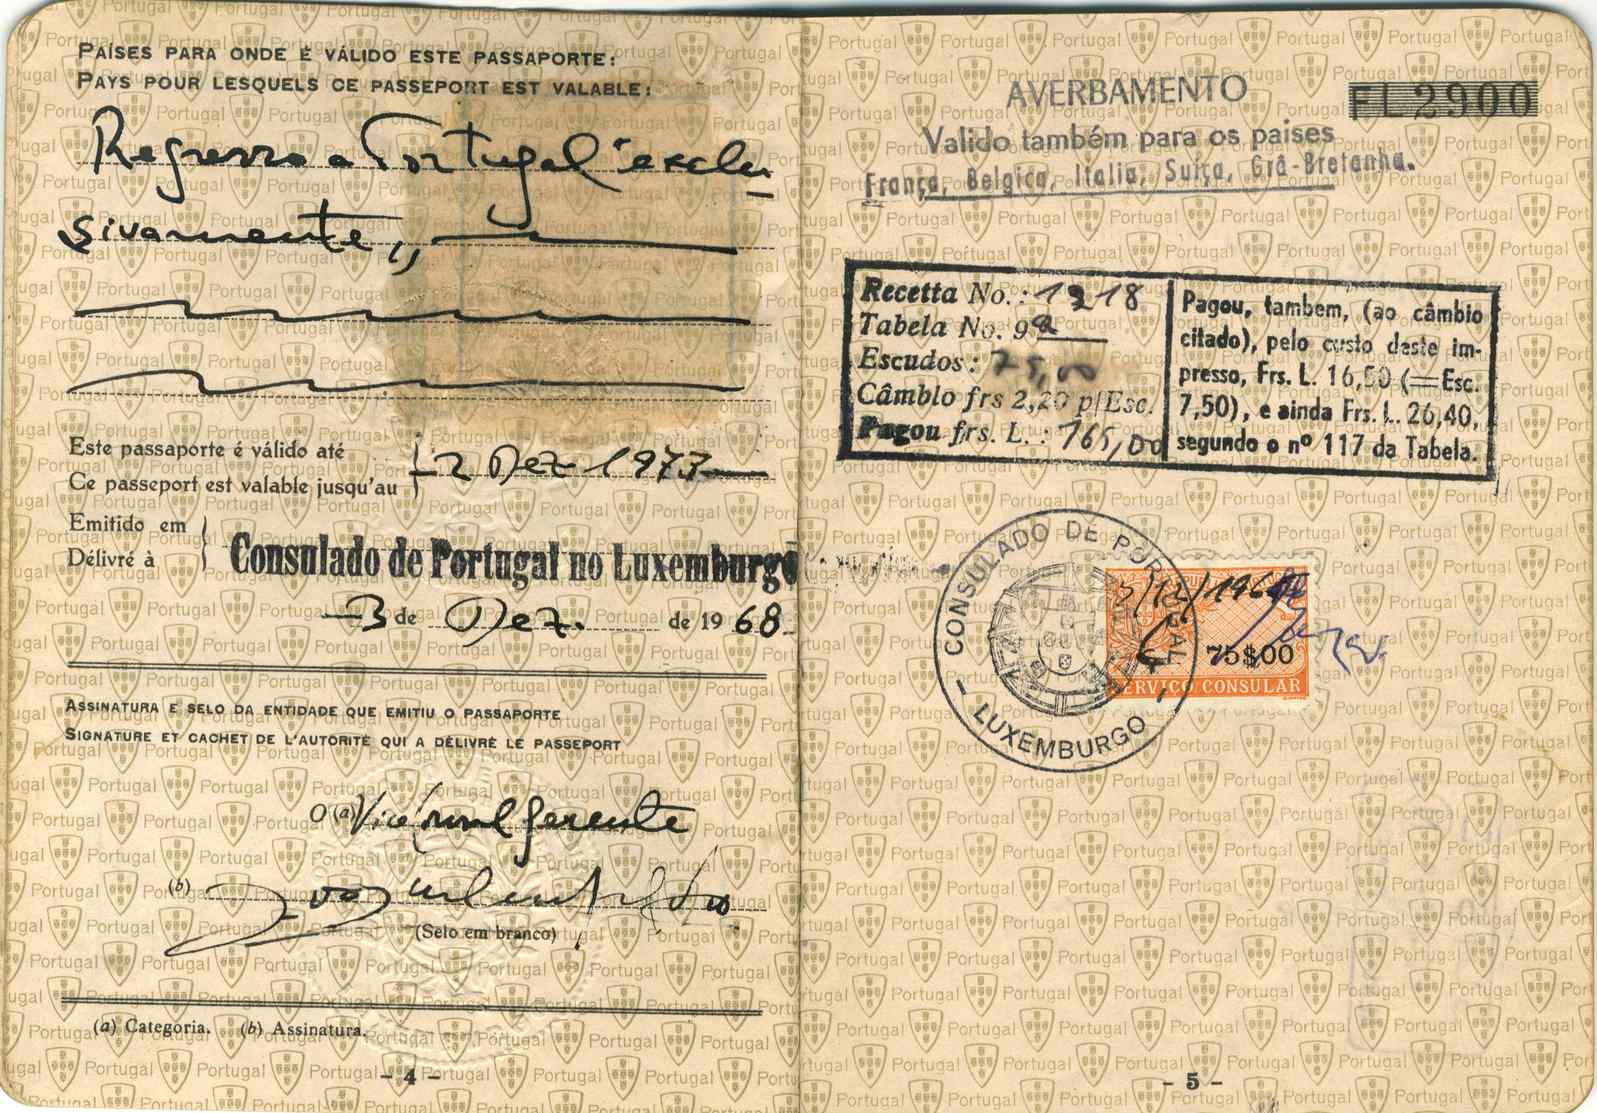 PAÍSES PARA ONDE É VÁLIDO ESTE PASSAPORTE:
PAYS POUR LESQUELS CE PASSEPORT EST VALABLE:
Regresso a Portugal exclu
sivamente,
Este passaporte é válido até
Ce passeport est valable jusqu'au
2 Dez 1973
Emitido em
Délivré à
Consulado de Portugal no Luxemburgo
3 de Dez. de 1968
ASSINATURA E SELO DA ENTIDADE QUE EMITIU O PASSAPORTE
SIGNATURE ET CACHET DE L'AUTORITÉ QUI A DÉLIVRÉ LE PASSEPORT
O (a) Vice Gerente
(b)
(Selo em branco)
(a) Categoria. (b) Assinatura.
- 4 -
AVERBAMENTO
FL2900
Valido também para os paises
França, Belgica, Italia, Suíça, Grã-Bretanha.
Recetta No.: 1218
Tabela No. 9a
Escudos: 75,00
Câmblo frs 2,20 p/Esc.
Pagou frs. L.: 165,00
Pagou, tambem, (ao câmbio
citado), pelo custo deste im-
presso, Frs. L. 16,50 (=Esc.
7,50), e ainda Frs. L. 26,40,
segundo o nº 117 da Tabela.
CONSULADO DE PORTUGAL
- LUXEMBURGO -
3/12/1968
75$00
SERVIÇO CONSULAR
- 5 -